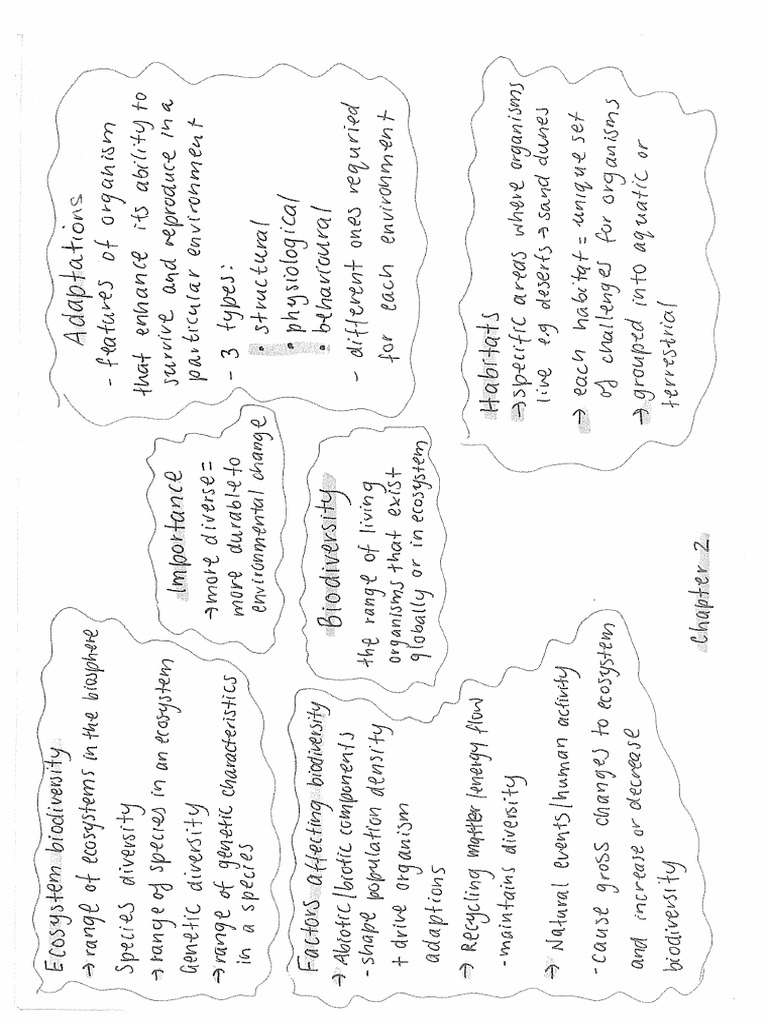 Ecosystem biodiversity
→ range of ecosystems in the biosphere
Species diversity
→ range of species in an ecosystem
Genetic diversity
→ range of genetic characteristics
in a species
Importance
→ more diverse =
more durable to
environmental change
Adaptations
- features of organism
that enhance its ability to
survive and reproduce in a
particular environment
- 3 types:
• structural
• physiological
• behavioural
- different ones requried
for each environment
Factors affecting biodiversity
→ Abiotic/biotic components
- shape population density
+ drive organism
adaptions
→ Recycling matter/energy flow
- maintains diversity
→ Natural events/human activity
- cause gross changes to ecosystem
and increase or decrease
biodiversity
Biodiversity
the range of living
organisms that exist
globally or in ecosystem
Habitats
→ specific areas where organisms
live eg deserts → sand dunes
→ each habitat = unique set
of challenges for organisms
→ grouped into aquatic or
terrestrial
Chapter 2